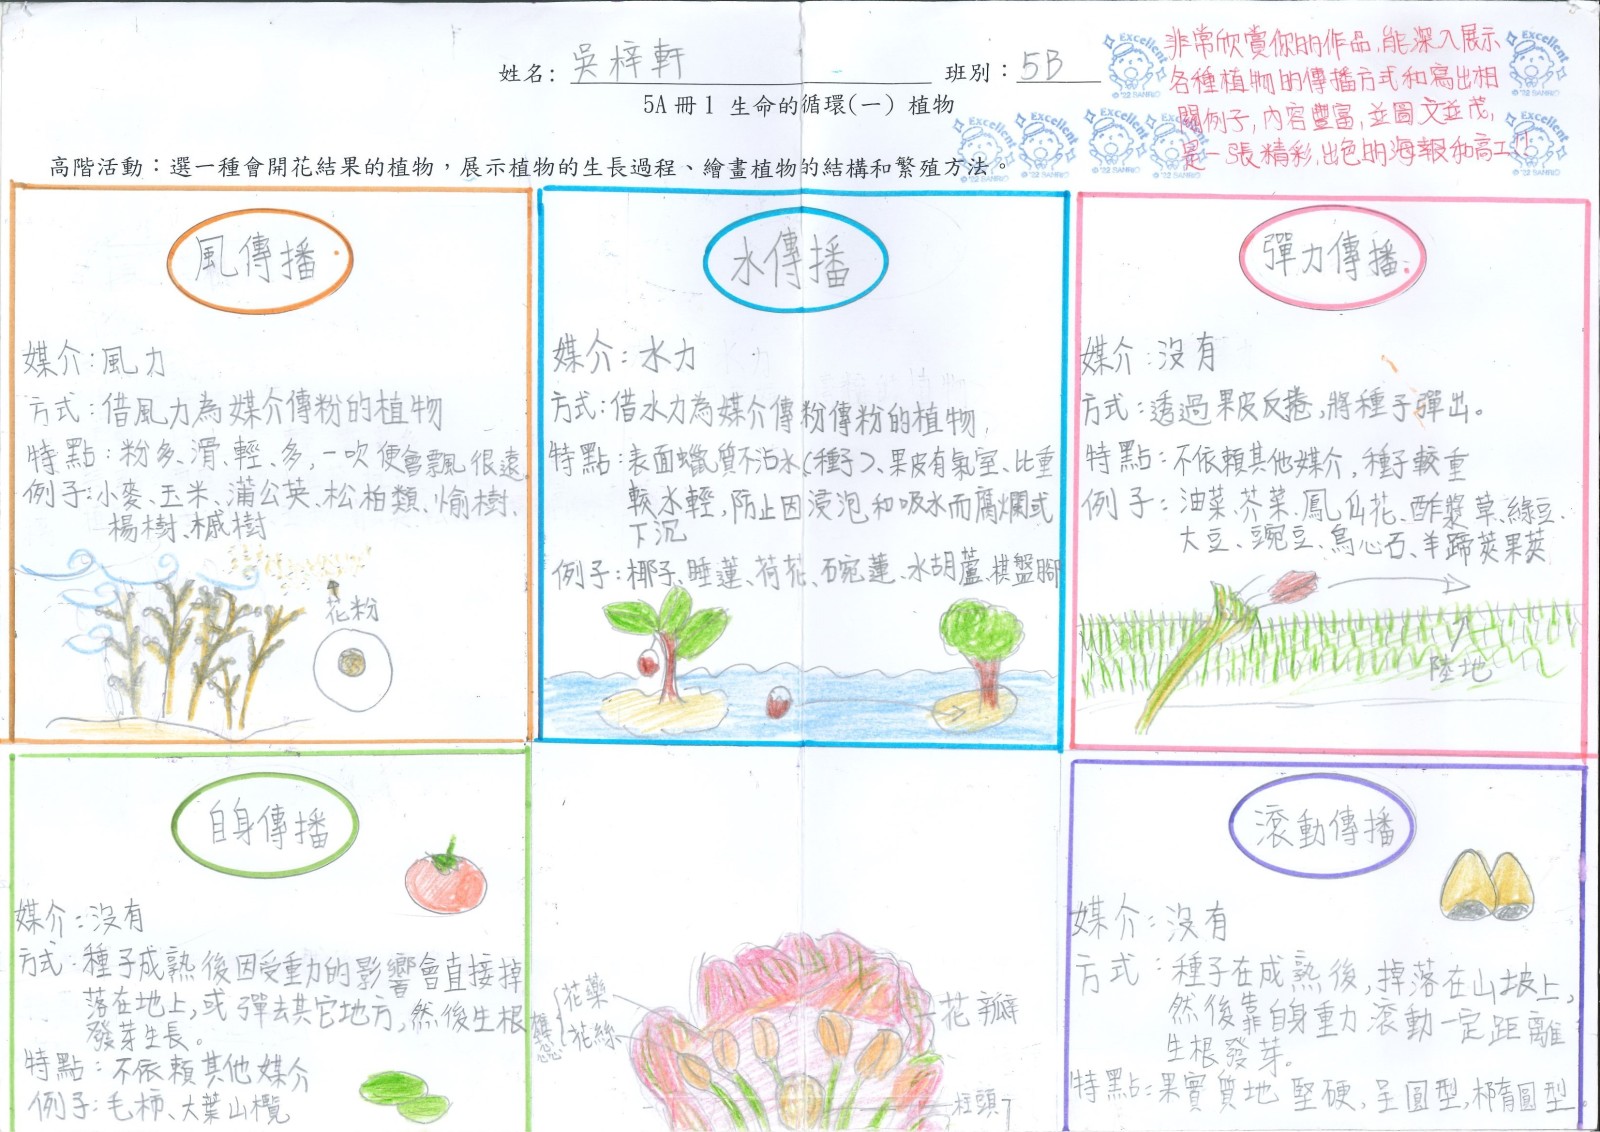 姓名: 吳梓軒 班別: 5B
5A冊1 生命的循環(一) 植物
高階活動：選一種會開花結果的植物，展示植物的生長過程、繪畫植物的結構和繁殖方法。
非常欣賞你的作品,能深入展示
各種植物的傳播方式和寫出相
關例子,內容豐富,並圖文並茂,
是一張精彩,出色的海報和高工!!
Excellent
Excellent
Excellent
Excellent
Excellent
Excellent
風傳播
媒介:風力
方式:借風力為媒介傳粉的植物
特點:粉多、滑、輕、多,一吹便會飄很遠。
例子:小麥、玉米、蒲公英、松柏類、愉樹、
楊樹、槭樹
花粉
水傳播
媒介:水力
方式:借水力為媒介傳粉傳粉的植物,
特點:表面蠟質不沾水(種子)、果皮有氣室、比重
較水輕,防止因浸泡和吸水而腐爛或
下沉
例子:椰子、睡蓮、荷花、碗蓮、水胡蘆、棋盤腳
彈力傳播
媒介:沒有
方式:透過果皮反捲,將種子彈出。
特點:不依賴其他媒介,種子較重
例子:油菜、芥菜、鳳仙花、酢漿草、綠豆、
大豆、豌豆、烏心石、羊蹄莢果莢
陸地
自身傳播
媒介:沒有
方式:種子成熟後因受重力的影響會直接掉
落在地上,或彈去其它地方,然後生根
發芽生長。
特點:不依賴其他媒介
例子:毛柿、大葉山欖
花藥
花絲
花瓣
柱頭
滾動傳播
媒介:沒有
方式:種子在成熟後,掉落在山坡上,
然後靠自身重力滾動一定距離
生根發芽。
特點:果實質地堅硬,呈圓型,橢圓型。